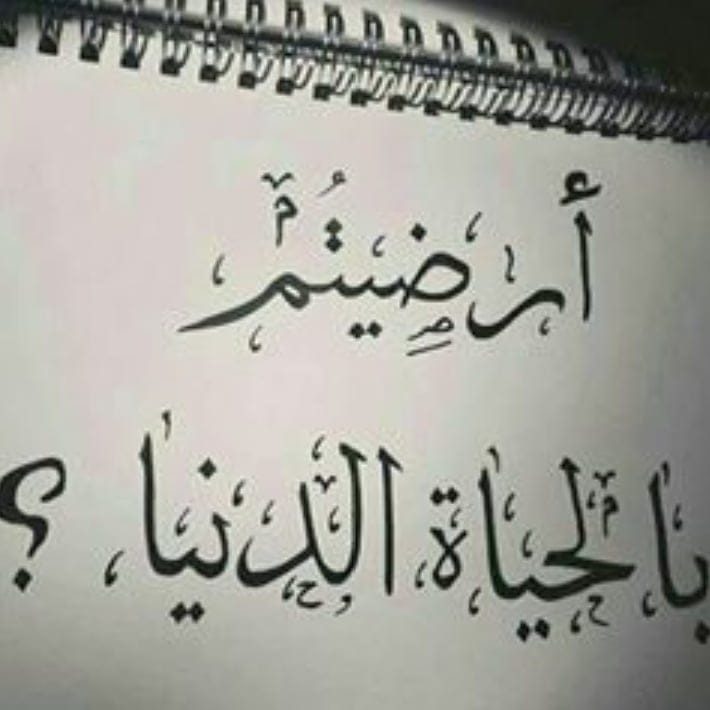 أرضيتم
بالحياة الدنيا ؟